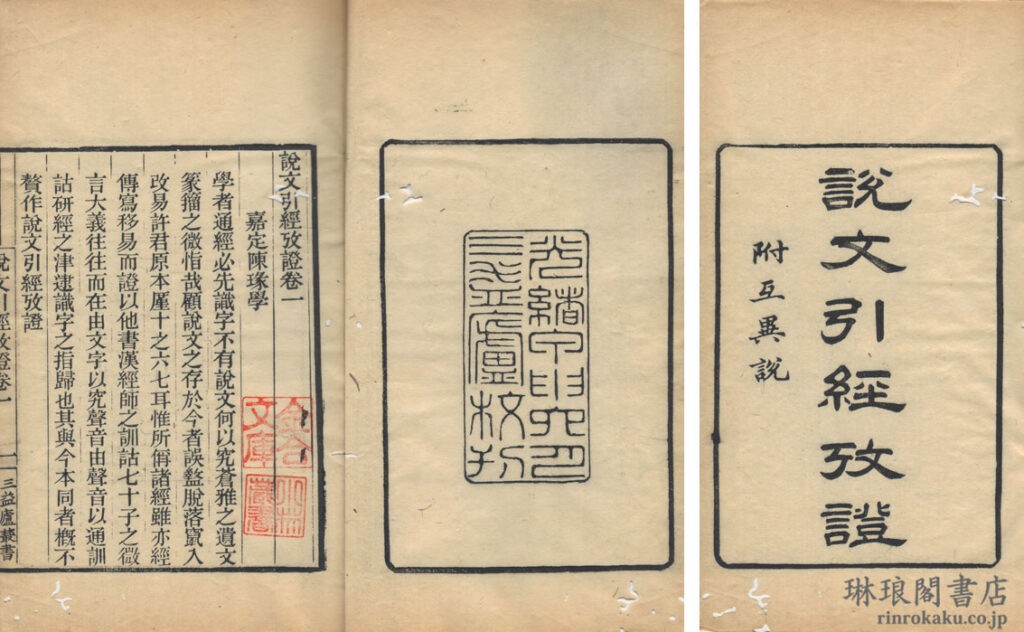 說文引經攷證
附互異説
光緒甲申六月
三益廬校刊
說文引經攷證卷一
嘉定陳瑑學
學者通經必先識字不有說文何以究蒼雅之遺文
篆籀之微恉哉顧說文之存於今者誤盭脫落竄入
改易許君原本厪十之六七耳惟所偁諸經雖亦經
傳寫移易而證以他書漢經師之訓詁七十子之微
言大義往往而在由文字以究聲音由聲音以通訓
詁研經之津逮識字之指歸也其與今本同者概不
贅作說文引經攷證
說文引經攷證卷一
一
三益廬叢書
文庫
藏書
琳琅閣書店
rinrokaku.co.jp